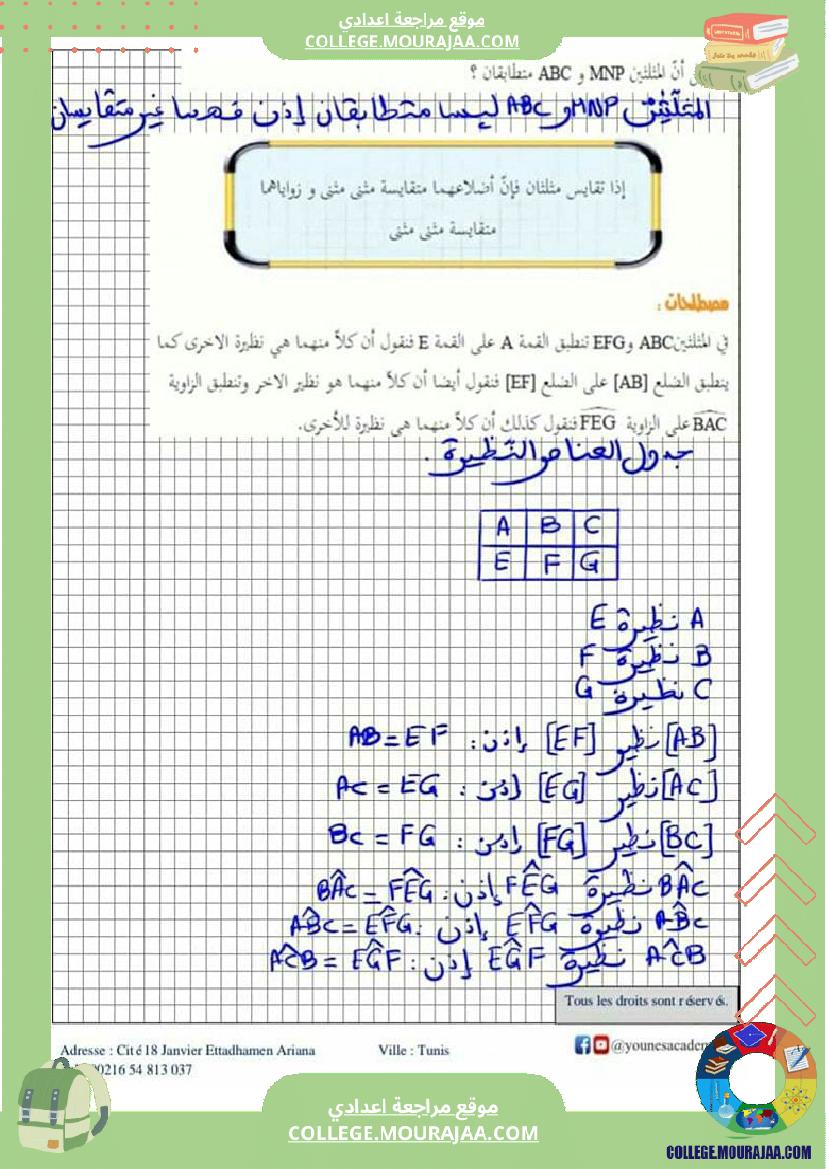 موقع مراجعة اعدادي
COLLEGE.MOURAJAA.COM
أنّ المثلثين MNP و ABC متطابقان ؟
المثلّثين MNP و ABC ليسا متطابقان إذن فهما غير متقايسان
إذا تقايس مثلثان فإنّ أضلاعهما متقايسة مثنى مثنى و زواياهما
متقايسة مثنى مثنى
مصطلحات :
في المثلثين ABC و EFG تنطبق القمة A على القمة E فنقول أن كلاّ منهما هي نظيرة الاخرى كما
ينطبق الضلع [AB] على الضلع [EF] فنقول أيضا أن كلاّ منهما هو نظير الاخر وتنطبق الزاوية
BAC على الزاوية FEG فنقول كذلك أن كلاّ منهما هي نظيرة للأخرى.
جدول العناصر النظيرة .
A B C
E F G
A نظيرة E
B نظيرة F
C نظيرة G
[AB] نظير [EF] إذن : AB = EF
[AC] نظير [EG] إذن : AC = EG
[BC] نظير [FG] إذن : BC = FG
BÂC نظيرة FÊG إذن : BÂC = FÊG
AB̂C نظيرة EF̂G إذن : AB̂C = EF̂G
AĈB نظيرة EĜF إذن : AĈB = EĜF
Tous les droits sont réservés.
Adresse : Cité 18 Janvier Ettadhamen Ariana Ville : Tunis @younesacadem
0216 54 813 037
موقع مراجعة اعدادي
COLLEGE.MOURAJAA.COM
COLLEGE.MOURAJAA.COM